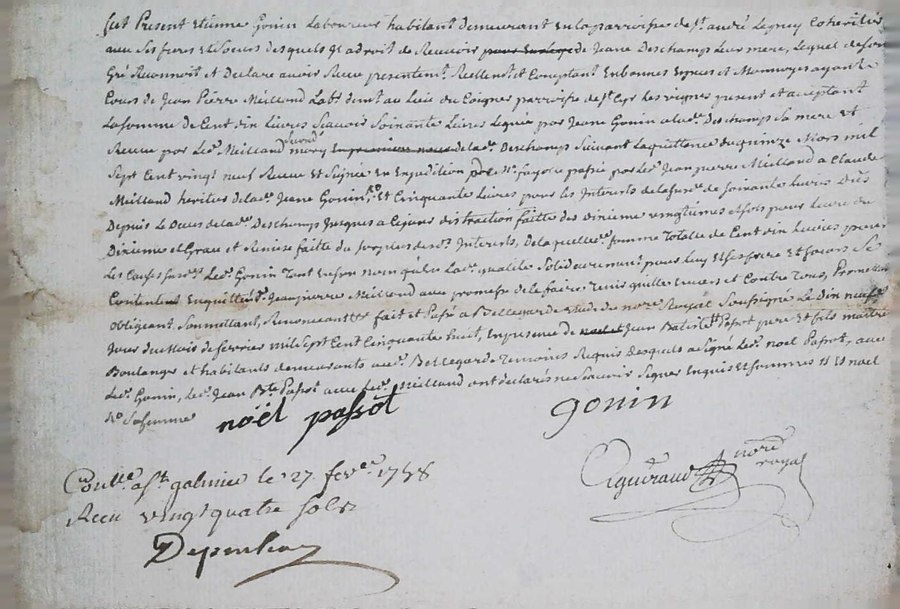 fut Present Etienne Gonin Laboureur habitant demeurant en la parroisse de st. andré Legpuy Coheritier
avec ses freres et soeurs desquels il a droit de Recevoir de Jeane Deschamps Leur mere, Lequel de son
Gré Reconnoit et Declare avoir Receu presentemt. Reellemt. et Comptant En bonnes Especes et Monnoyes ayant
Cours de Jean Pierre Meilland Labr. demt. au Lieu du Coignet parroisse de st. Cyr Les vignes present et acceptant
La somme de Cent dix Livres Scavoir Soixante Livres Leguée par Jeane Gonin a lad. Deschamps Sa mere et
Receue par Led. Meilland Second mary de lad. Deschamps Suivant La quittance du quinze Mars mil
Sept Cent vingt neuf Receue et Signée en Expedition passée par led. Jean pierre Meilland a Claude
Meilland heritier de lad. Jeane Gonin, Et Cinquante Livres pour les Interets de lad. somme de soixante Livres Dûs
Depuis Le Deces de lad. Deschamps Jusques a Ce jour distraction faitte des Dixieme vingtiemes et sols pour Livre du
Dixieme et Grace et Remise faitte du surplus desd. Interets, De laquelle somme Totalle de Cent dix Livres pour
Les Causes susd. Led. Gonin Tant en son nom qu'en La d. qualité Solidairement pour Luy Et ses frere Et soeurs Se
Contentent En quittent Jean pierre Meilland avec promesse de le faire tenir quitte Envers et Contre Tous, Promettant
obligeant Soumettant, Renonceant fait et Passé a Bellegarde Etude du nore. Royal Soussigné Le Dix neufe.
Jour du Mois de fevrier Mil Sept Cent Cinquante huit, En presence de Jean Batiste Passot pere Et fils maitre
Boulanger et habitants demeurants aud. Bellegarde temoins Requis desquels a Signé Led. noel Passot, avec
Led. Gonin, Led. Jean Bte. Passot avec led. Meilland ont declarés ne Scavoir Signer Enquis Et sommés noel
noël passot gonin
Coulle. a st. galmier le 27 fevre. 1758
Receu vingt quatre sols
nore. royal